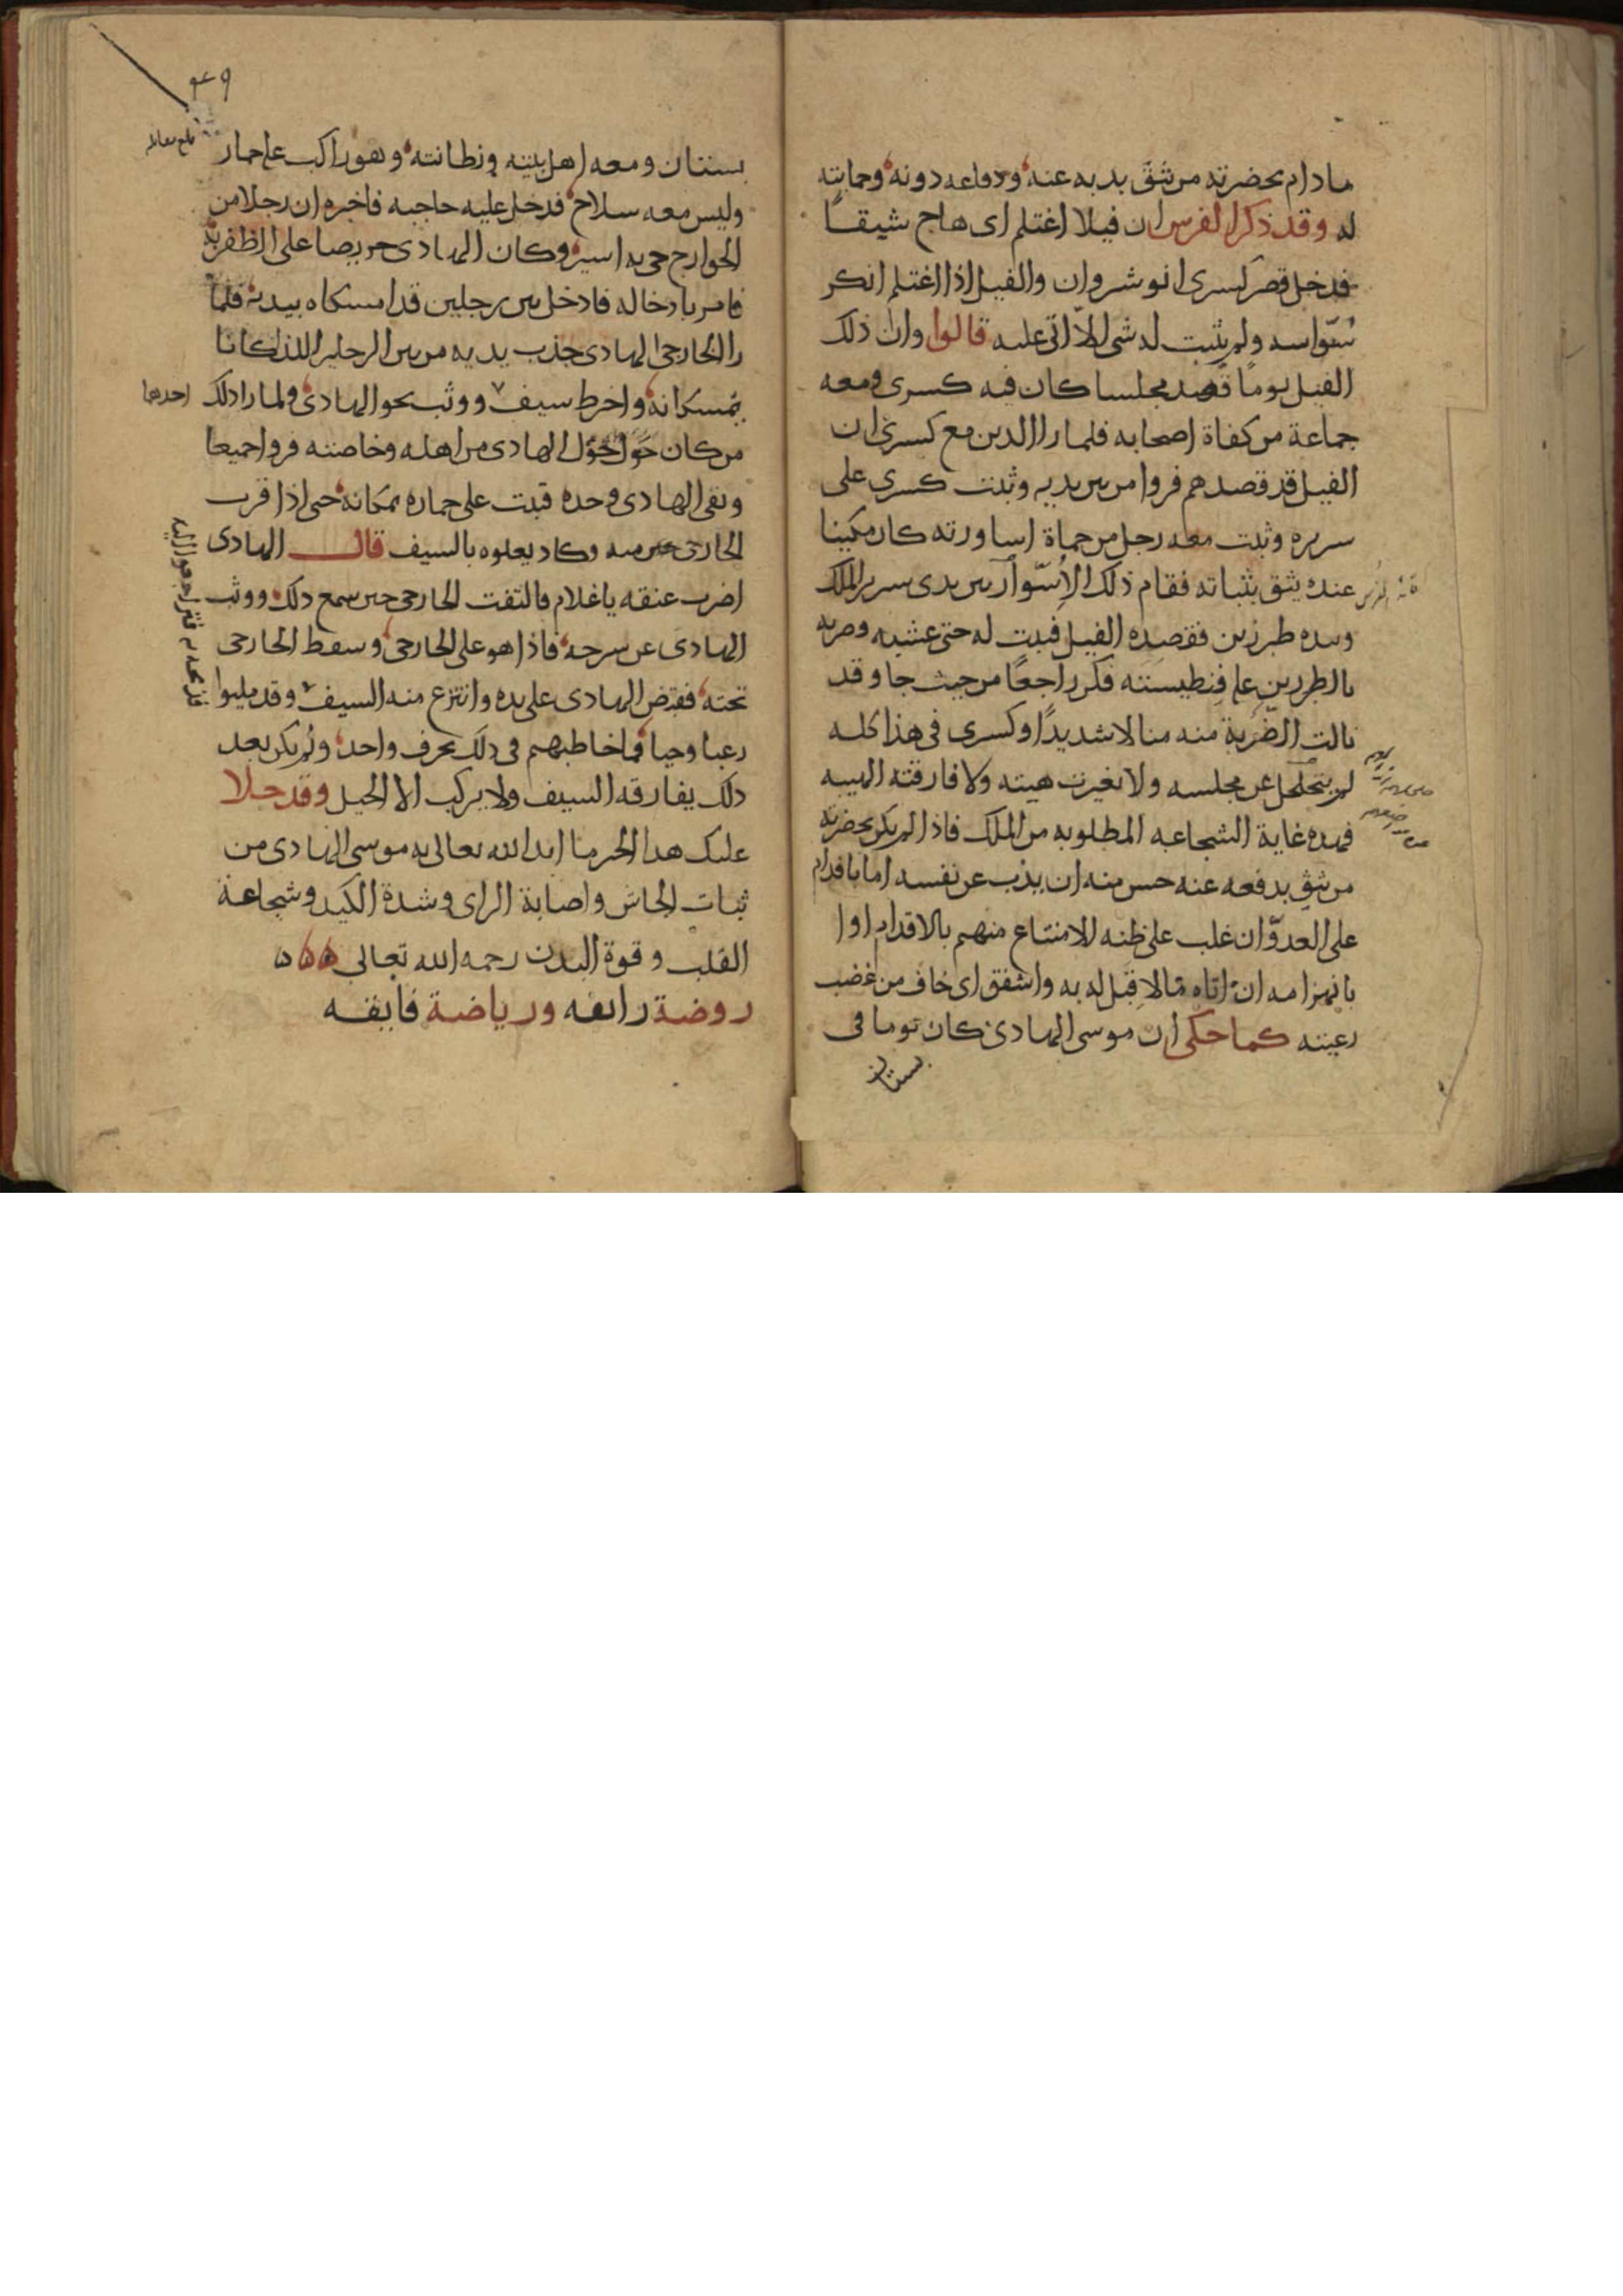 مادام بحضرته من يثق بدبه عنه ودفاعه دونه وحمايته
له وقد ذكر الفرس ان فيلا اغتلم اى هاج شبقا
فدخل قصر كسرى انوشروان والفيل اذا اغتلم انكر
سواسه ولم يثبت له شى الا اتى عليه قالوا وان ذلك
الفيل يوما قصد مجلسا كان فيه كسرى ومعه
جماعة من كفاة اصحابه فلما راا الذين مع كسرى ان
الفيل قد قصدهم فروا من بين يديه وثبت كسرى على
سريره وثبت معه رجل من حماة اساورته كان مكينا
عنده يثق بثباته فقام ذلك الاسوار بين يدى سرير الملك
وبيده طبرزين فقصده الفيل فثبت له حتى غشيه وضربه
بالطبرزين على فنطيسته فكر راجعا من حيث جا وقد
نالت الضربة منه منالا شديدا وكسرى فى هذا كله
لم يتحلحل عن مجلسه ولا تغيرت هيته ولا فارقته الهيبه
فهذه غاية الشجاعه المطلوبه من الملك فاذا لم يكن بحضرته
من يثق بدفعه عنه حسن منه ان يذب عن نفسه اما باقدام
على العدو ان غلب على ظنه الامتناع منهم بالاقدام اوا
بانهزامه ان اتاه مالا قبل له به واشفق اى خاف من غضب
رعيته كما حكى ان موسى الهادى كان يوما فى
بستان
٩٤٩
بستان ومعه اهل بيته وبطانته وهو راكب على حمار
وليس معه سلاح فدخل عليه حاجبه فاخبره ان رجلا من
الخوارج جى به اسير وكان الهادى حريصا على الظفر به
فامر بادخاله فادخل بين رجلين قد امسكاه بيديه فلما
راا الخارجى الهادى جذب يديه من بين الرجلين اللذين كانا
يمسكانه واخرط سيف ووثب نحو الهادى ولما راا ذلك
احدهما
من كان حول الهادى من اهله وخاصته فروا جميعا
وبقى الهادى وحده فثبت على حماره بمكانه حتى اذا قرب
الخارجى منه وكاد يعلوه بالسيف قال الهادى
اضرب عنقه ياغلام فالتفت الخارجى حين سمع ذلك ووثب
الهادى عن سرجه فاذا هو على الخارجى وسقط الخارجى
تحته فقبض الهادى على يده وانتزع منه السيف وقد مليوا
رعبا وحيا فما خاطبهم فى ذلك بحرف واحد ولم يكن بعد
ذلك يفارقه السيف ولا يركب الا الخيل وقد جلا
عليك هذا الخبر ما ايد الله تعالى به موسى الهادى من
ثبات الجاش واصابة الراى وشدة الكيد وشجاعة
القلب وقوة البدن رحمه الله تعالى
روضة رائقه ورياضة فايقه